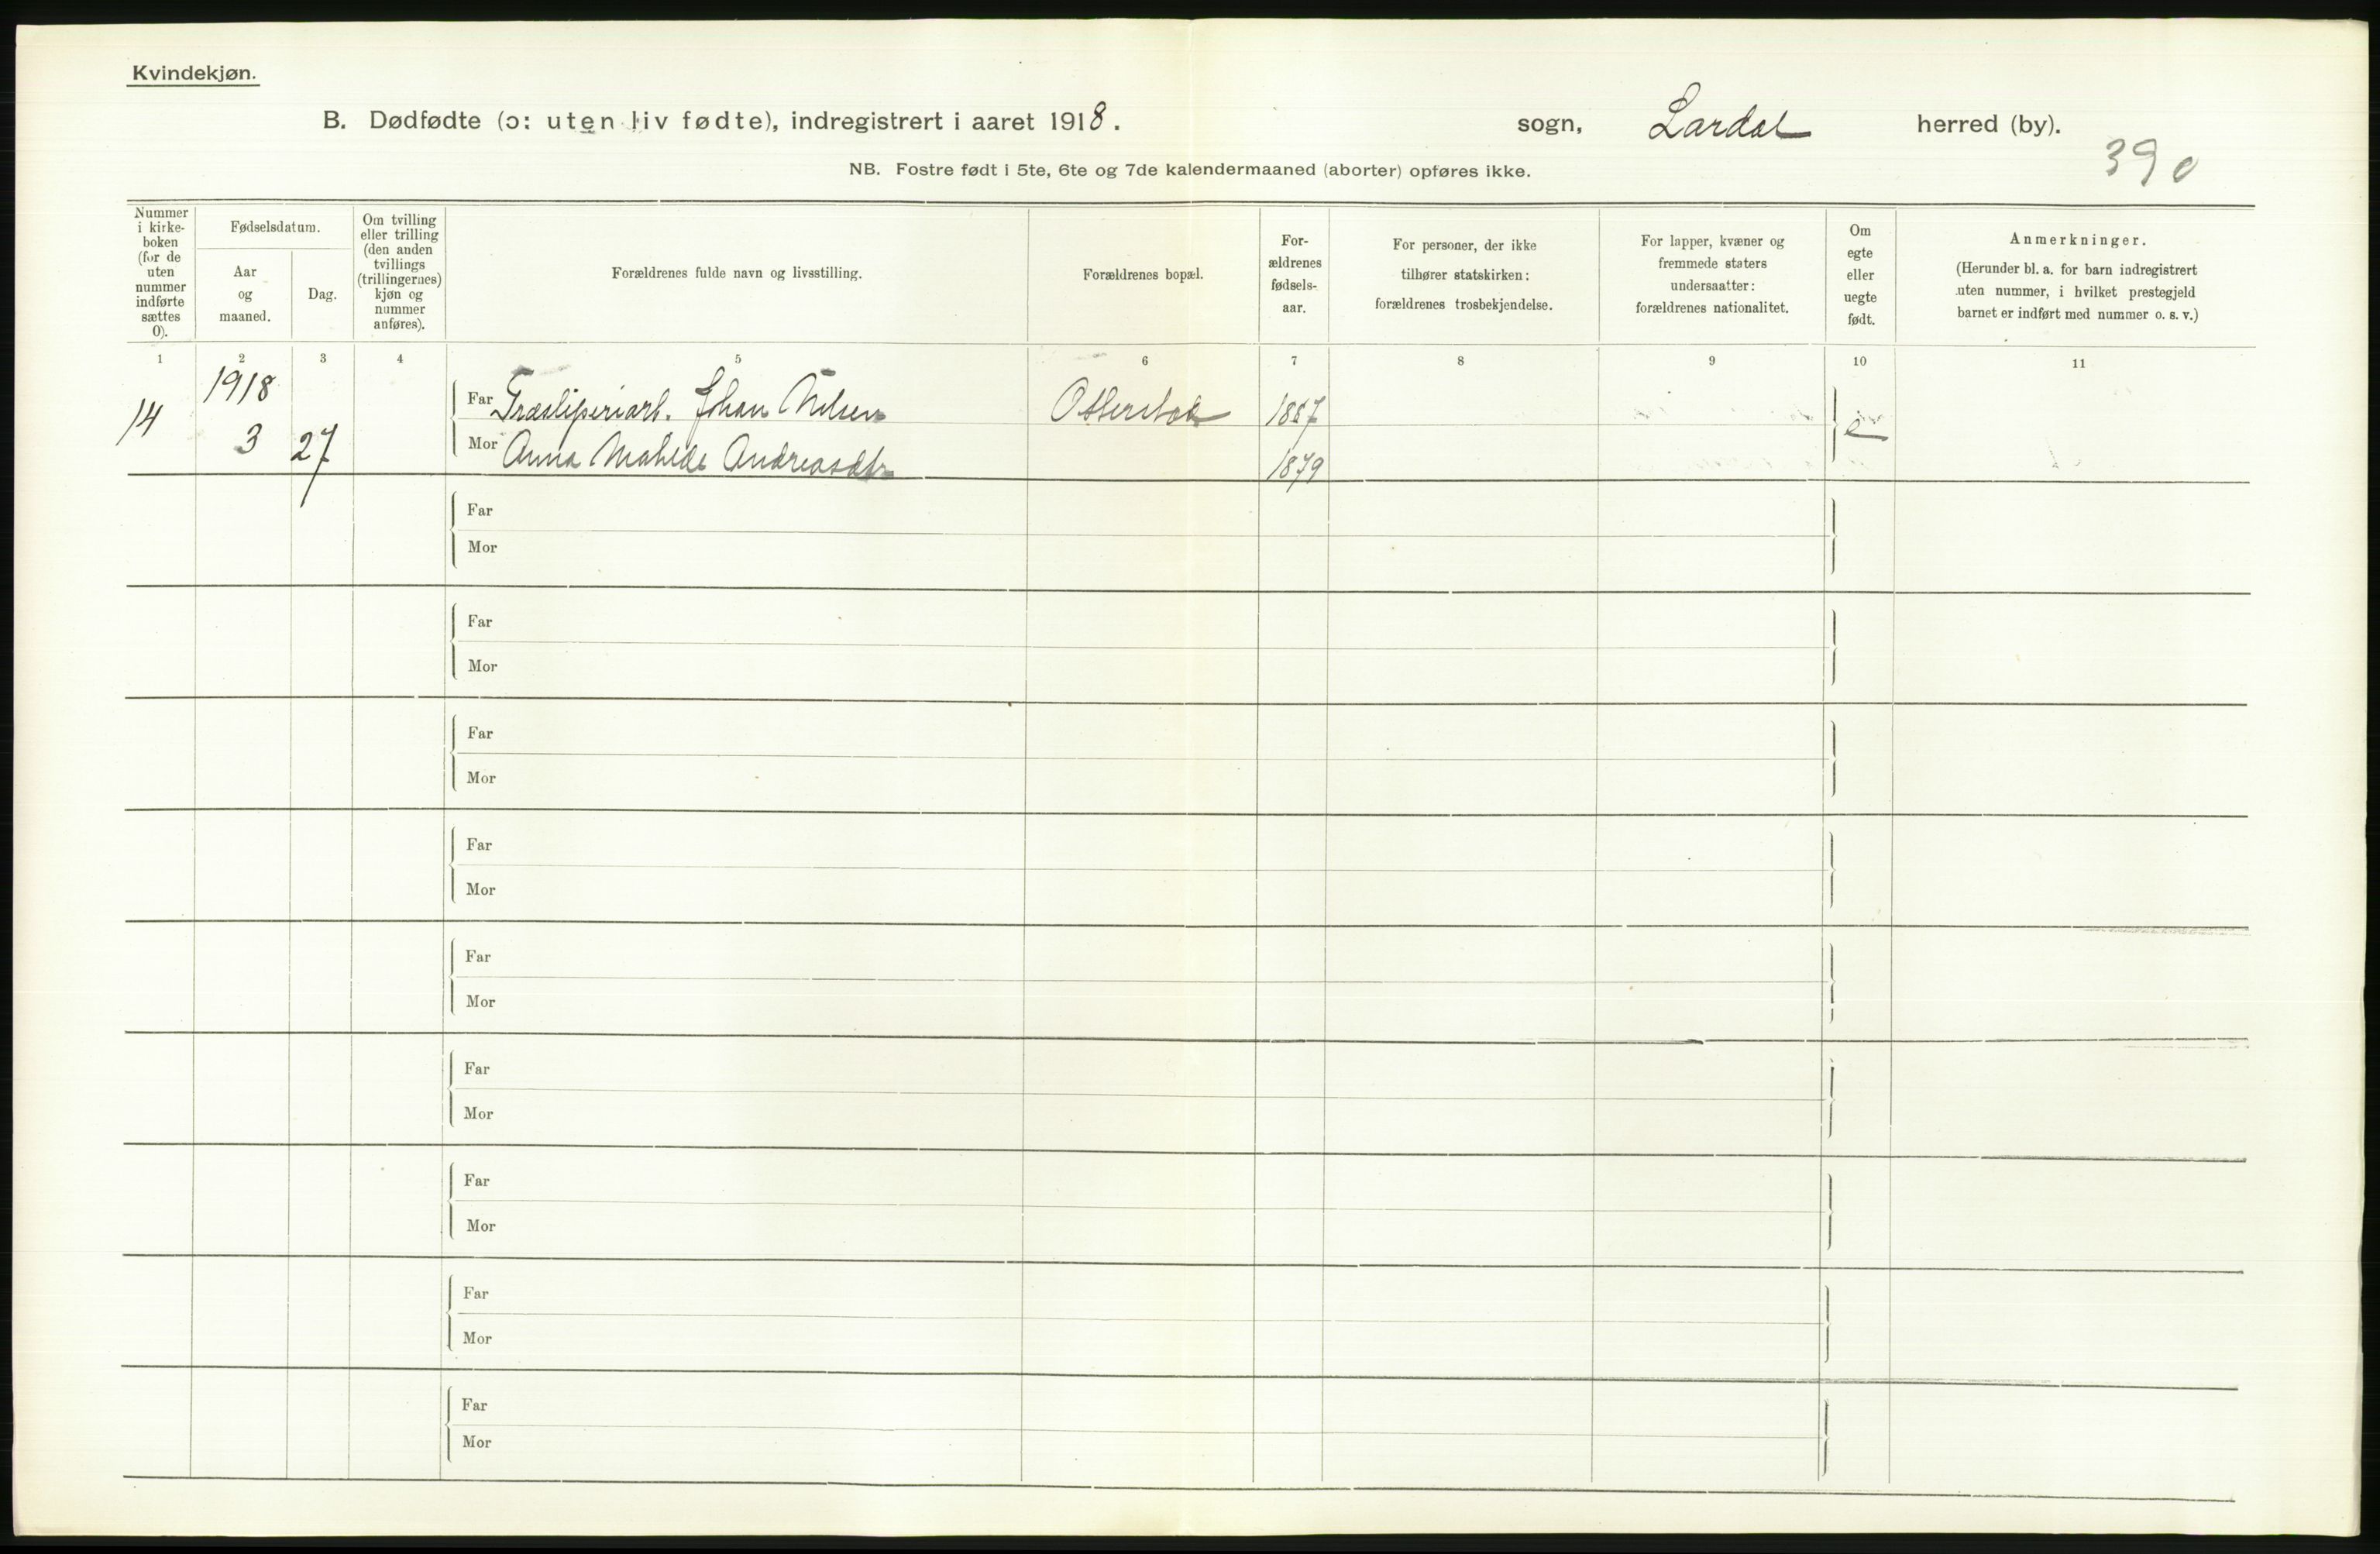 Kvindekjøn.
B. Dødfødte (ɔ: uten liv fødte), indregistrert i aaret 1918. sogn, Lardal herred (by).
390
NB. Fostre født i 5te, 6te og 7de kalendermaaned (aborter) opføres ikke.
Nummer i kirke- boken (for de uten nummer indførte sættes 0).
Fødselsdatum.
Aar og maaned.
Dag.
Om tvilling eller trilling (den anden tvillings (trillingernes) kjøn og nummer anføres).
Forældrenes fulde navn og livsstilling.
Forældrenes bopæl.
For- ældrenes fødsels- aar.
For personer, der ikke tilhører statskirken: forældrenes trosbekjendelse.
For lapper, kvæner og fremmede staters undersaatter: forældrenes nationalitet.
Om egte eller uegte født.
Anmerkninger.
(Herunder bl. a. for barn indregistrert uten nummer, i hvilket prestegjeld barnet er indført med nummer o. s. v.)
1 2 3 4 5 6 7 8 9 10 11
1918
14 3 27
Far Træsliperiarb. Johan Nilsen 1887
Mor Anna Andreasdtr 1879
e
Far
Mor
Far
Mor
Far
Mor
Far
Mor
Far
Mor
Far
Mor
Far
Mor
Far
Mor
Far
Mor